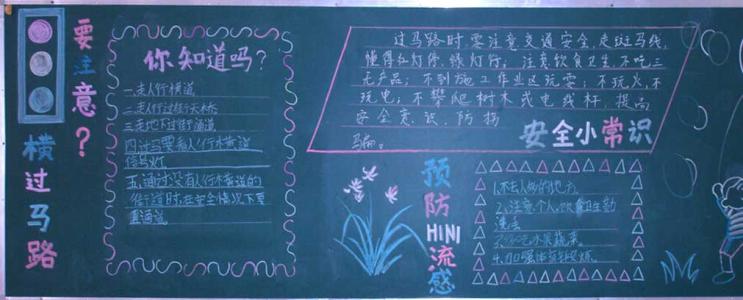 要注意?
横过马路
你知道吗?
一.走人行横道
二.走人行过街天桥
三.走地下过街通道
四.过马路要看人行横道
信号灯
五.通过没有人行横道的
街道时,在安全情况下要
直通过
过马路时,要注意交通安全,走斑马线,
懂得红灯停、绿灯行;注意饮食卫生,不吃三
无产品;不到施工作业区玩耍;不玩火,不
玩电;不攀爬树木或电线杆,提高
安全意识,防拐
骗。
安全小常识
预防H1N1流感
1.不去人多的地方
2.注意个人饮食卫生勤
洗手
3.多吃水果蔬菜。
4.加强体育锻炼。